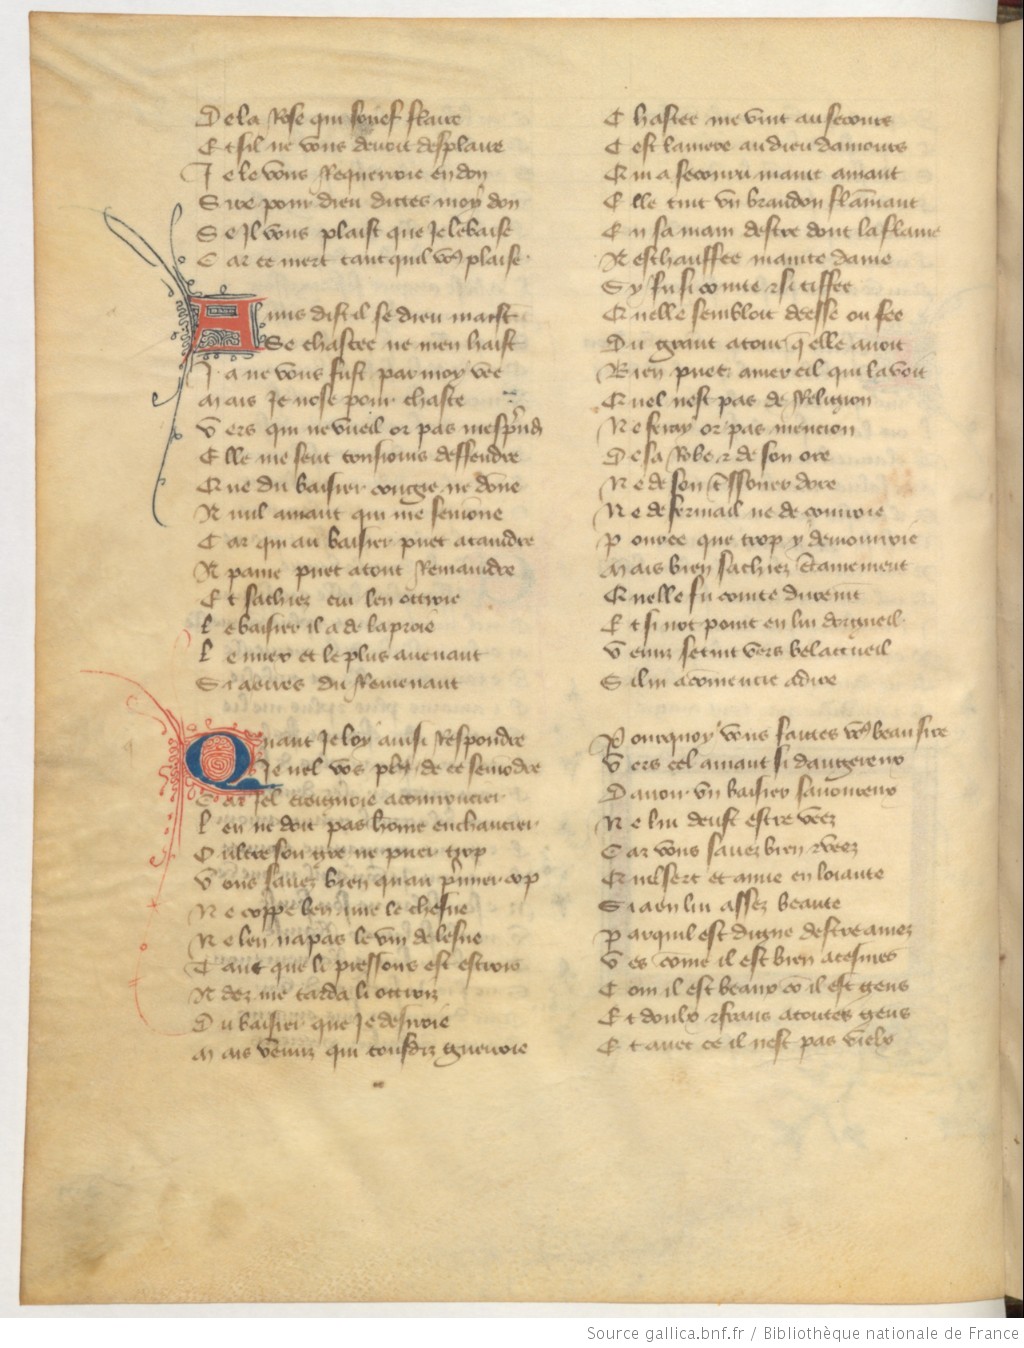 De la Rose qui souef flaire
Et sil ne vous deuoit desplaire
Je le vous Requerroie en don
Sire pour dieu dictes moy don
Se Il vous plaist que Je le baise
Car ce niert tant quil vo9 plaise
Amis dist il se dieu maist
Se chastee ne men haist
Ja ne vous fust par moy vee
Mais Je nose pour chaste
Vers qui ne vueil or pas mesprendr
Elle me seut tousiours deffendre
Que du baisier congie ne done
A nul amant qui me semone
Car qui au baisier puet ataindre
A paine puet atout Remaindre
Et sachiez cui len ottroie
Le baisier il a de la proie
Le mier et le plus auenant
Si a erres du Remenant
Quant Je loy ainsi Respondre
Je nel vos plus de ce semodre
Car Jel creignoie a courroucier
Len ne doit pas home enchaucier
Oultre son gre ne puer trop
Vous sauez bien quau pmier cop
Ne coppe len mie le chesne
Ne len na pas le vin de lesne
Tant que li pressours est estrois
Adez me tarda li ottroiz
Du baisier que Je desiroie
Mais venuz qui tousdiz guerroie
Chastee me vint au secours
Cest la mere au dieu damours
Qui a secouru maint amant
Elle tint vn brandon flamant
En sa main destre dont la flame
A eschauffee mainte dame
Sy fu si cointe et si tiffee
Quelle sembloit deesse ou fee
Du grant atour qelle auoit
Bien puet amer cil qui la voit
Quel nest pas de Religion
Ne feray or pas mencion
De sa Robe et de son ore
Ne de son tssouer dore
Ne de fermail ne de courroie
Pour ce que trop y demourroie
Mais bien sachiez ctainement
Quelle fu cointe durement
Et si not point en lui dorgueil
Venuz se tint vers bel acueil
Si li a comencie a dire
Pourquoy vous faites vo9 beau sire
Vers cel amant si dangereux
Dauoir vn baisier sauoureux
Ne lui deust estre veez
Car vous sauez bien et veez
Quil sert et aime en loiaute
Si a en lui assez beaute
Par quil est digne destre amez
Ves come il est bien acesmes
Com il est beaux co il est gens
Et doulx et frans a toutes gens
Et auec ce il nest pas vielx
Source gallica.bnf.fr / Bibliothèque nationale de France